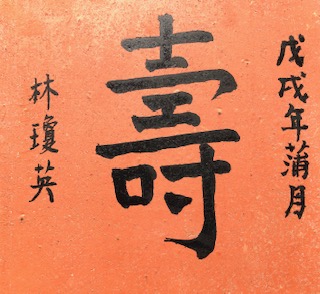 戊戌年蒲月
壽
林瓊英